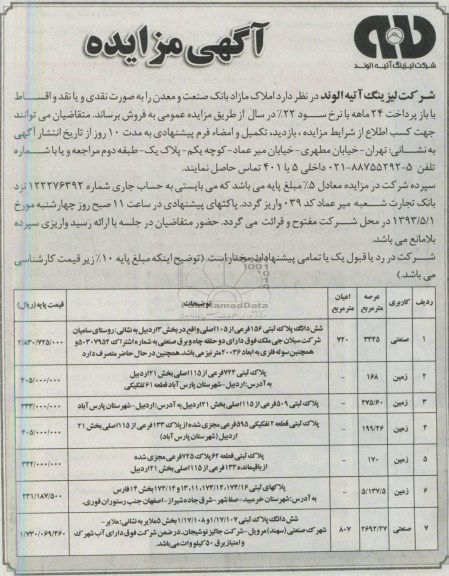 آگهی مزایده
شرکت لیزینگ آتیه الوند
شرکت لیزینگ آتیه الوند در نظر دارد املاک مازاد بانک صنعت و معدن را به صورت نقدی و یا نقد و اقساط
با باز پرداخت ۲۴ ماهه با نرخ سود ۲۲٪ در سال از طریق مزایده عمومی به فروش برساند. متقاضیان می توانند
جهت کسب اطلاع از شرایط مزایده ، بازدید، تکمیل و امضاء فرم پیشنهادی به مدت ۱۰ روز از تاریخ انتشار آگهی
به نشانی: تهران-خیابان مطهری-خیابان میر عماد-کوچه یکم-پلاک یک-طبقه دوم مراجعه و یا با شماره
تلفن ۵-۸۸۷۵۵۲۹۲-۰۲۱ داخلی ۵ یا ۴۰۱ تماس حاصل نمایند.
سپرده شرکت در مزایده معادل ۵٪ مبلغ پایه می باشد که می بایستی به حساب جاری شماره ۱۲۲۲۷۶۳۹۲ نزد
بانک تجارت شعبه میر عماد کد ۰۳۹ واریز گردد. پاکتهای پیشنهادی در ساعت ۱۱ صبح روز چهارشنبه مورخ
۱۳۹۳/۵/۱ در محل شرکت مفتوح و قرائت می گردد. حضور متقاضیان در جلسه با ارائه رسید واریزی سپرده
بلامانع می باشد.
شرکت در رد یا قبول یک یا تمامی پیشنهادات مختار است. (توضیح اینکه مبلغ پایه ۱۰٪ زیر قیمت کارشناسی
می باشد.)
ردیف کاربری عرصه مترمربع اعیان مترمربع توضیحات قیمت پایه (ریال)
۱ صنعتی ۳۳۲۵ ۷۲۰ شش دانگ پلاک ثبتی ۱۵۶ فرعی از ۱۰۵ اصلی واقع در بخش ۳ اردبیل به نشانی: روستای سامیان
شرکت سبلان جی ملک فوق دارای دو حلقه چاه و برق صنعتی به شماره اشتراک ۵۰۳۰۷۹۵۲ و
همچنین سوله فلزی به ابعاد ۳۶×۲۰ متر نیز می باشد. همچنین در حال حاضر متصرف دارد ۲/۸۳۰/۷۲۵/۰۰۰
۲ زمین ۱۶۸ - پلاک ثبتی ۷۲۴ فرعی از ۱۱۵ اصلی بخش ۲۱ اردبیل
به آدرس: اردبیل-شهرستان پارس آباد قطعه ۶۱ تفکیکی ۴۰۵/۰۰۰/۰۰۰
۳ زمین ۲۷۵/۶۰ - پلاک ثبتی ۵۰۹ فرعی از ۱۱۵ اصلی بخش ۲۱ اردبیل به آدرس: اردبیل-شهرستان پارس آباد ۳۳۳/۰۰۰/۰۰۰
۴ زمین ۱۹۹/۲۶ - پلاک ثبتی قطعه ۲ تفکیکی ۵۹۵ فرعی مجزی شده از پلاک ۱۳۳ فرعی از ۱۱۵ اصلی بخش ۲۱
اردبیل (شهرستان پارس آباد) ۴۰۵/۰۰۰/۰۰۰
۵ زمین ۱۷۰ - پلاک ثبتی قطعه ۶۲ پلاک ۷۲۵ فرعی مجزی شده
از باقیمانده ۱۳۳ فرعی از ۱۱۵ اصلی بخش ۲۱ اردبیل ۳۴۲/۰۰۰/۰۰۰
۶ زمین ۵/۱۳۷/۵ - پلاکهای ثبتی
به آدرس: شهرستان خرمبید-صفاشهر-شرق جاده شیراز-اصفهان جنب رستوران قوری. ۲۳۱/۱۸۷/۵۰۰
۷ صنعتی ۲۶۹۲/۲۷ ۸۰۷ شش دانگ پلاک ثبتی ۱/۱۷/۱۰۷ و ۱/۱۷/۱۰۸ بخش ۵ ملایر به نشانی: ملایر-
شهرک صنعتی (سهند) مرویل-شرکت جالیز نوشیجان. در ضمن شرکت فوق دارای آب شهرک
و امتیاز برق ۵۰ کیلو وات می باشد. ۱/۷۳۰/۰۶۹/۴۶۰